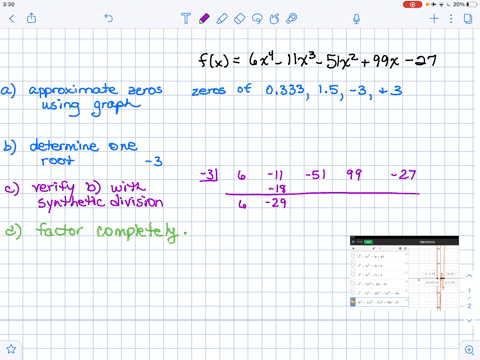 3:30
20%
f(x) = 6x⁴ - 11x³ - 51x² + 99x - 27
a) approximate zeros using graph
zeros of 0.333, 1.5, -3, +3
b) determine one root -3
c) verify b) with synthetic division
-3| 6 -11 -51 99 -27
-18
6 -29
d) factor completely.
1
2